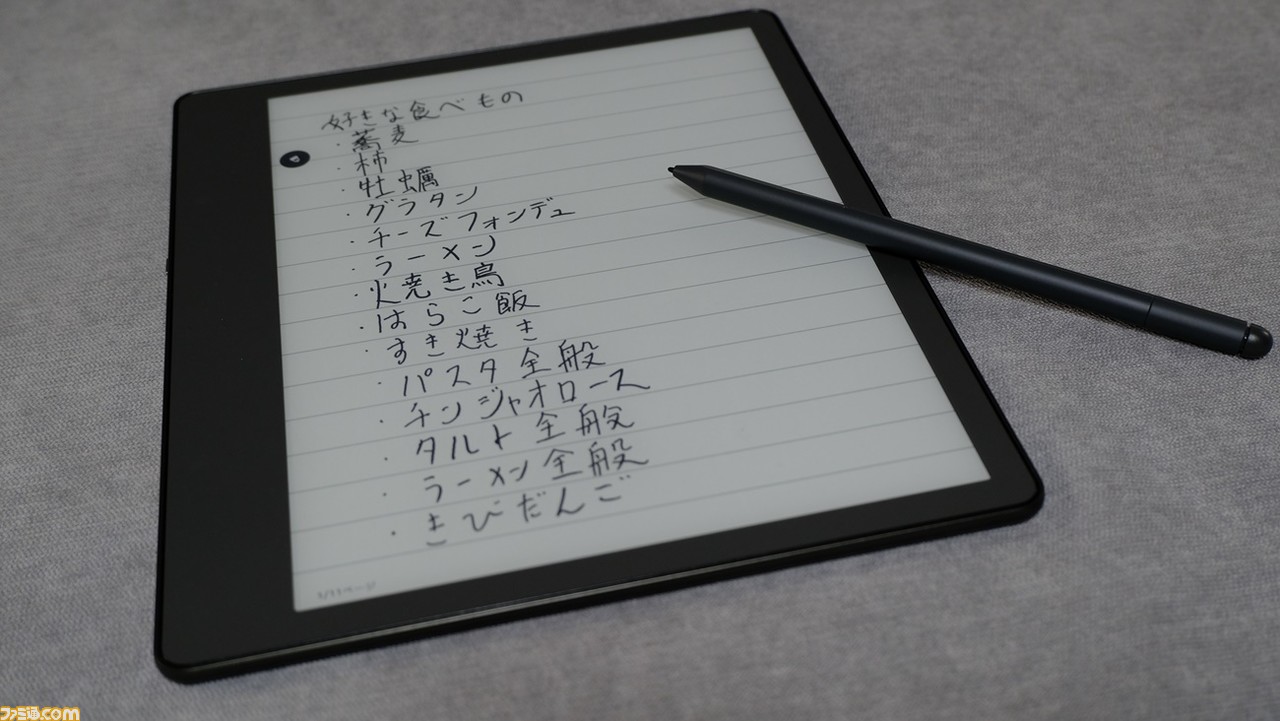 好きな食べもの
・蕎麦
・柿
・牡蠣
・グラタン
・チーズフォンデュ
・ラーメン
・火焼き鳥
・はらこ飯
・すき焼き
・パスタ全般
・チンジャオロース
・タルト全般
・ラーメン全般
・きびだんご
ファミ通.com